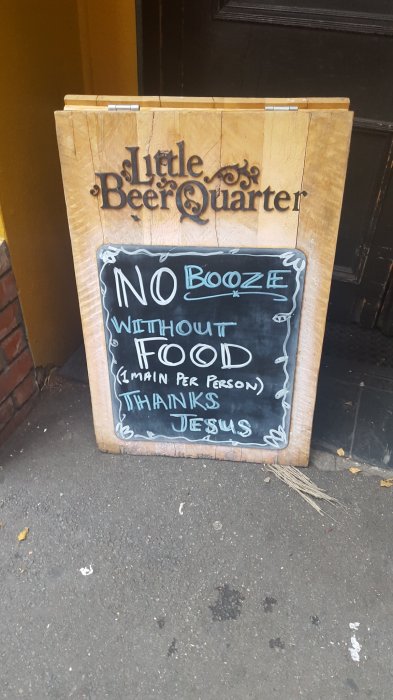 Little
BeerQuarter
NO BOOZE
WITHOUT
FOOD
(1 MAIN PER PERSON)
THANKS
JESUS